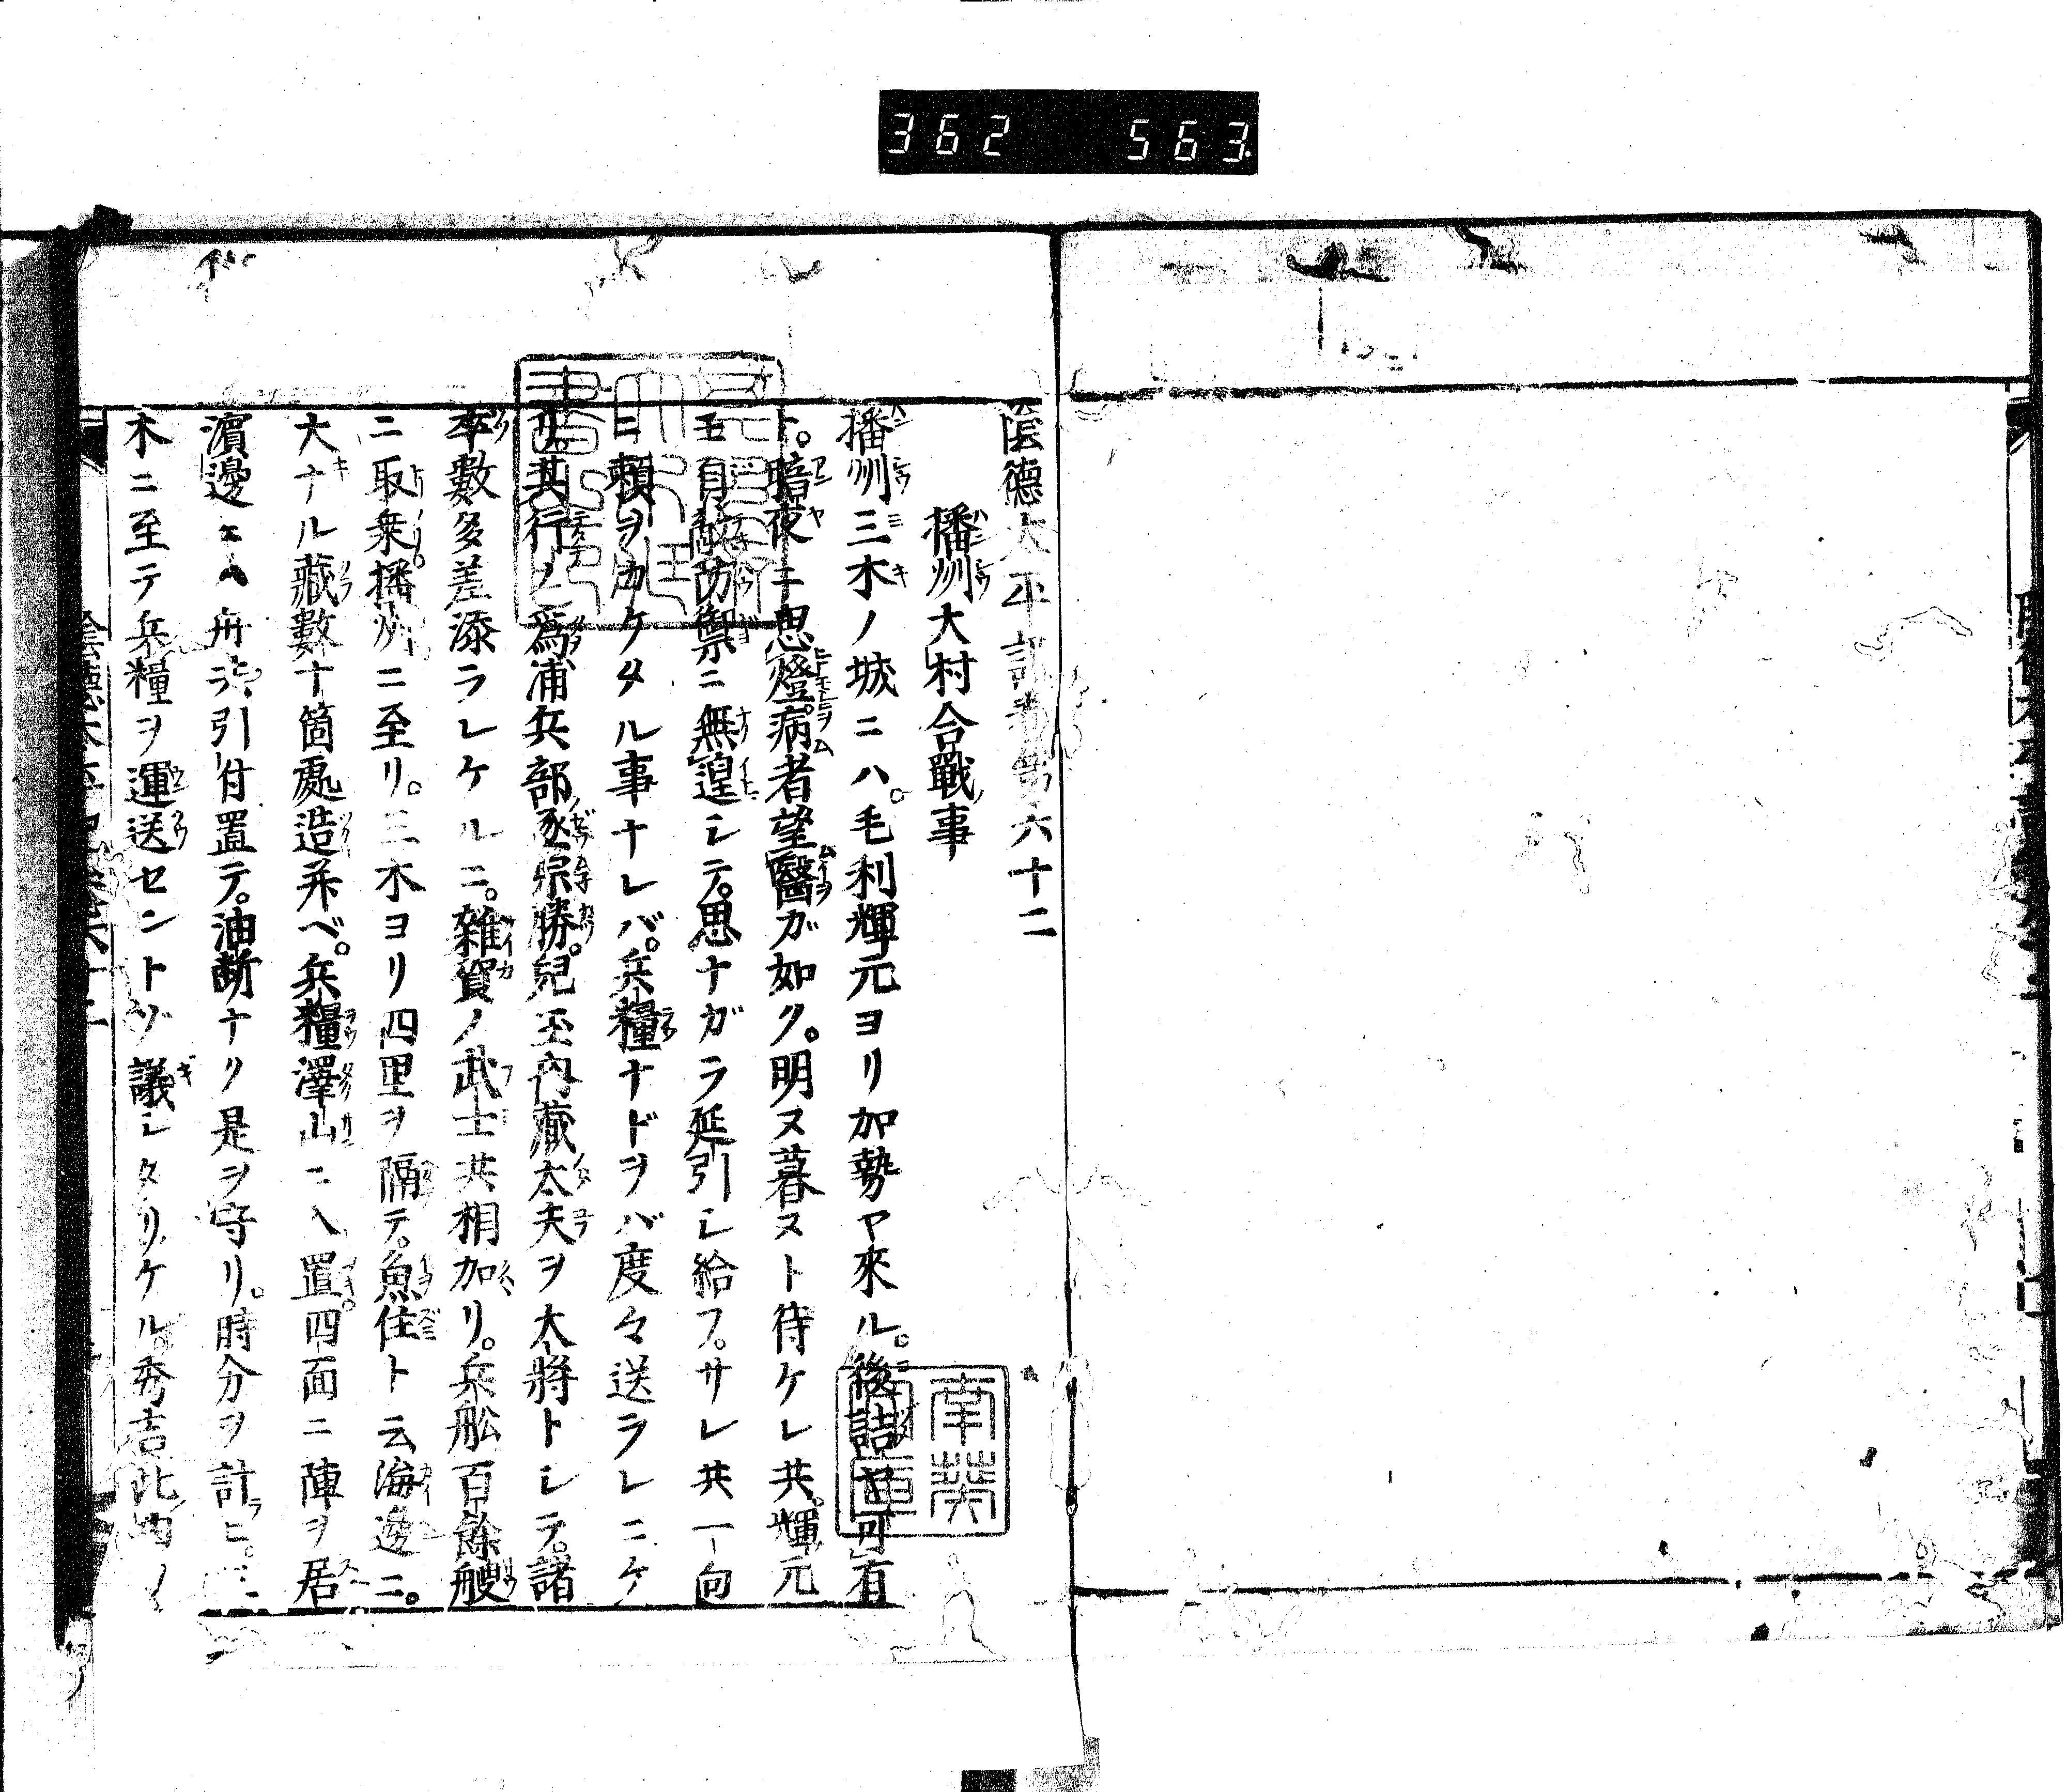 362 563
陰德太平記卷第六十二
播州大村合戰事
播州三木ノ城ニハ。毛利輝元ヨリ加勢ヤ來ル。後詰ヤ可有
ト。暗夜ニ思燈。病者望醫ガ如ク。明ヌ暮ヌト待ケレ共。輝元
モ自敵防禦ニ無遑シテ。思ナガラ延引シ給フ。サレ共一向
ニ頼ヲカケタル事ナレバ。兵糧ナドヲバ度々送ラレニケ
リ。其行ノ爲浦兵部丞宗勝。兒玉内藏太夫ヲ大將トシテ。諸
卒數多差添ラレケルニ。雜賀ノ武士共相加リ。兵舩百餘艘
ニ取乗播州ニ至リ。三木ヨリ四里ヲ隔テ。魚住ト云海邊ニ。
大ナル藏數十箇處造并ベ。兵糧澤山ニ入置。四面ニ陣ヲ居
濵邊ニハ舟共引付置テ。油斷ナク是ヲ守リ。時分ヲ計ニ。三
木ニ至テ兵糧ヲ運送セントゾ議シタリケル。秀吉此由ノ